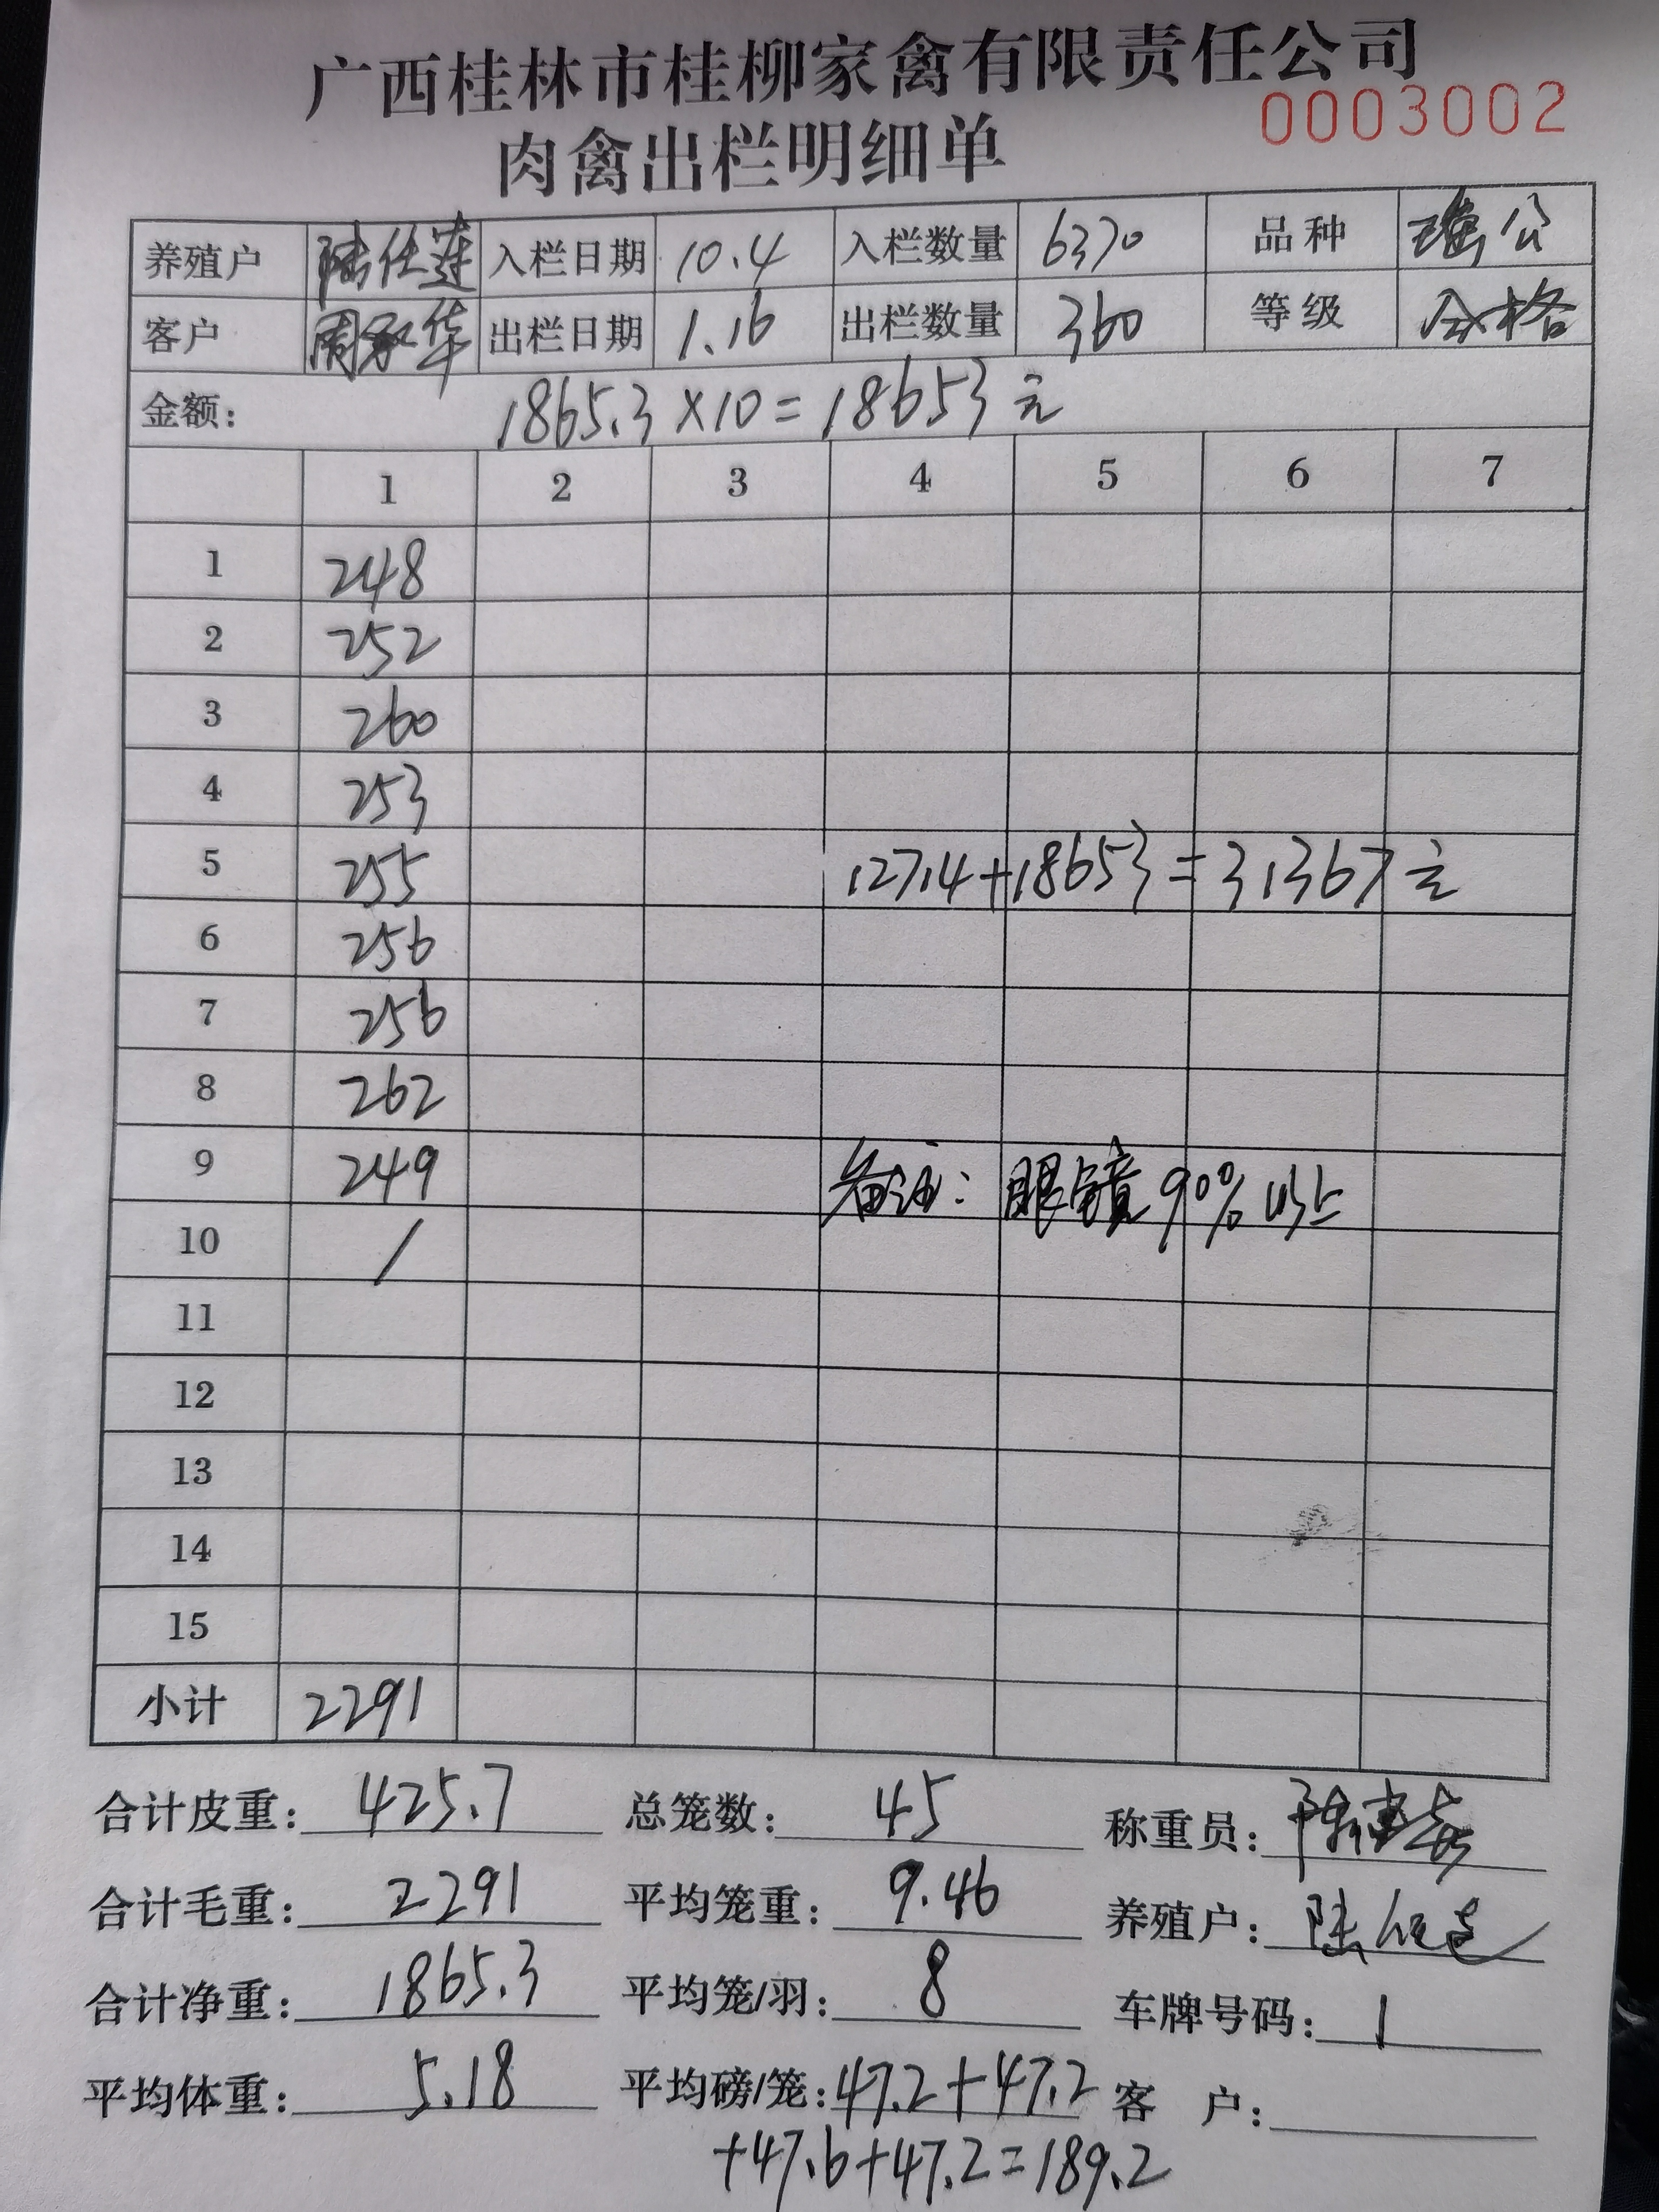 广西桂林市桂柳家禽有限责任公司
0003002
肉禽出栏明细单
养殖户 陆仕莲 入栏日期 10.4 入栏数量 6370 品种 瑶公
客户 周承华 出栏日期 1.16 出栏数量 360 等级 合格
金额: 1865.3×10=18653元
1 2 3 4 5 6 7
1 248
2 252
3 260
4 253
5 255 12714+18653=31367元
6 256
7 256
8 262
9 249 备注: 眼镜90%以上
10 /
11
12
13
14
15
小计 2291
合计皮重: 425.7 总笼数: 45 称重员:
合计毛重: 2291 平均笼重: 9.46 养殖户: 陆仕莲
合计净重: 1865.3 平均笼/羽: 8 车牌号码: 1
平均体重: 5.18 平均磅/笼: 47.2+47.2 客 户:
+47.6+47.2=189.2